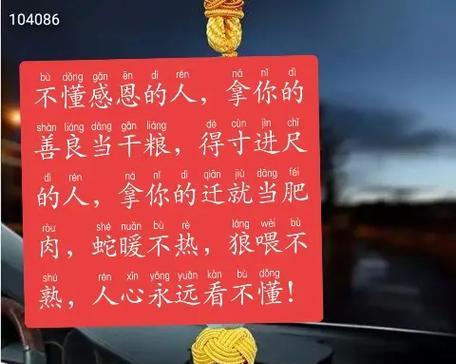 104086
bù dǒng gǎn ēn di rén ná nǐ dì
不懂感恩的人，拿你的
shàn liáng dāng gān liáng dé cùn jìn chǐ
善良当干粮，得寸进尺
dì rén ná nǐ dì qiān jiù dāng féi
的人，拿你的迁就当肥
ròu shé nuǎn bù rè láng wèi bù
肉，蛇暖不热，狼喂不
shú rén xīn yǒng yuǎn kàn bù dǒng
熟，人心永远看不懂！